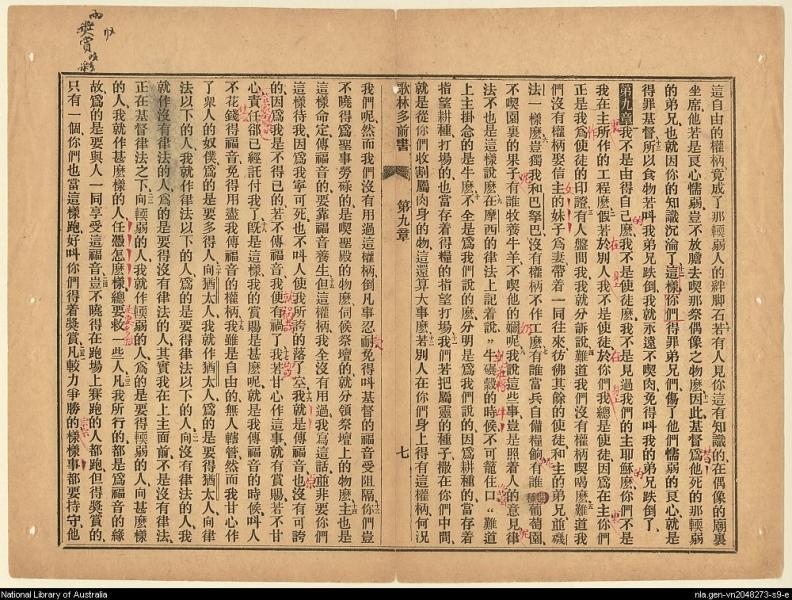 這自由的權柄竟成了那輭弱人的絆脚石若有人見你這有知識的在偶像的廟裏
坐席他若是良心懦弱豈不放膽去喫那祭偶像之物麼因此基督爲他死的那輭弱
的弟兄也就因你的知識沉淪了這樣你們得罪弟兄們傷了他們懦弱的良心就是
得罪基督所以食物若叫我弟兄跌倒我就永遠不喫肉免得叫我的弟兄跌倒了
第九章 我不是由得自己麼我不是使徒麼我不是見過我們的主耶穌麼你們不是
我在主所作的工程麼假若於別人我不是使徒於你們我總是使徒因爲在主你們
正是我爲使徒的印證有人盤問我我就分訴說難道我們沒有權柄喫喝麼難道我
們沒有權柄娶信主的妹子爲妻帶着一同往來彷彿其餘的使徒和主的弟兄並磯
法一樣麼豈獨我和巴拏巴沒有權柄不作工麼有誰當兵自備糧餉有誰 葡萄園
不喫園裏的果子有誰牧養牛羊不喫他的嬭呢我說這些事豈是照着人的意見律
法不也是這樣說麼在摩西的律法上記着說牛碾穀的時候不可籠住口難道
上主掛念的是牛麼不全是爲我們說的麼分明是爲我們說的因爲耕種的當存着
指望耕種打場的也當存着得糧的指望打場我們若把屬靈的種子撒在你們中間
就是從你們收割屬肉身的物這還算大事麼若別人在你們身上得有這權柄何況
歌林多前書 第九章 七
我們呢然而我們沒有用過這權柄倒凡事忍耐免得叫基督的福音受阻隔你們豈
不曉得爲聖事勞碌的是喫聖殿的物麼伺候祭壇的就分領祭壇上的物麼主也是
這樣命定傳福音的要靠福音養生但這權柄我全沒有用過我寫這話並非要你們
這樣待我因爲我寧可死也不叫人使我所誇的落了空我就是傳福音也沒有可誇
的因爲我是不得已的若不傳福音我便有禍了我若甘心作這事就有賞賜若不甘
心責任卻已經託付我了旣是這樣我的賞賜是甚麼呢就是我傳福音的時候叫人
不花錢得福音免得用盡我傳福音的權柄我雖是自由的無人轄管然而我甘心作
了衆人的奴僕爲的是要多得人向猶太人我就作猶太人爲的是要得猶太人向律
法以下的人我就作律法以下的人爲的是要得律法以下的人向沒有律法的人我
就作沒有律法的人爲的是要得沒有律法的人其實我在上主面前不是沒有律法
正在基督律法之下向輭弱的人我就作輭弱的人爲的是要得輭弱的人向甚麼樣
的人我就作甚麼樣的人任憑怎麼樣總要救一些人凡我所行的都是爲福音的緣
故爲的是要與人一同享受這福音豈不曉得在跑場上賽跑的人都跑但得獎賞的
只有一個你們也當這樣跑好叫你們得着獎賞凡較力爭勝的樣樣事都要持守他
National Library of Australia
nla.gen-vn2048273-s9-e